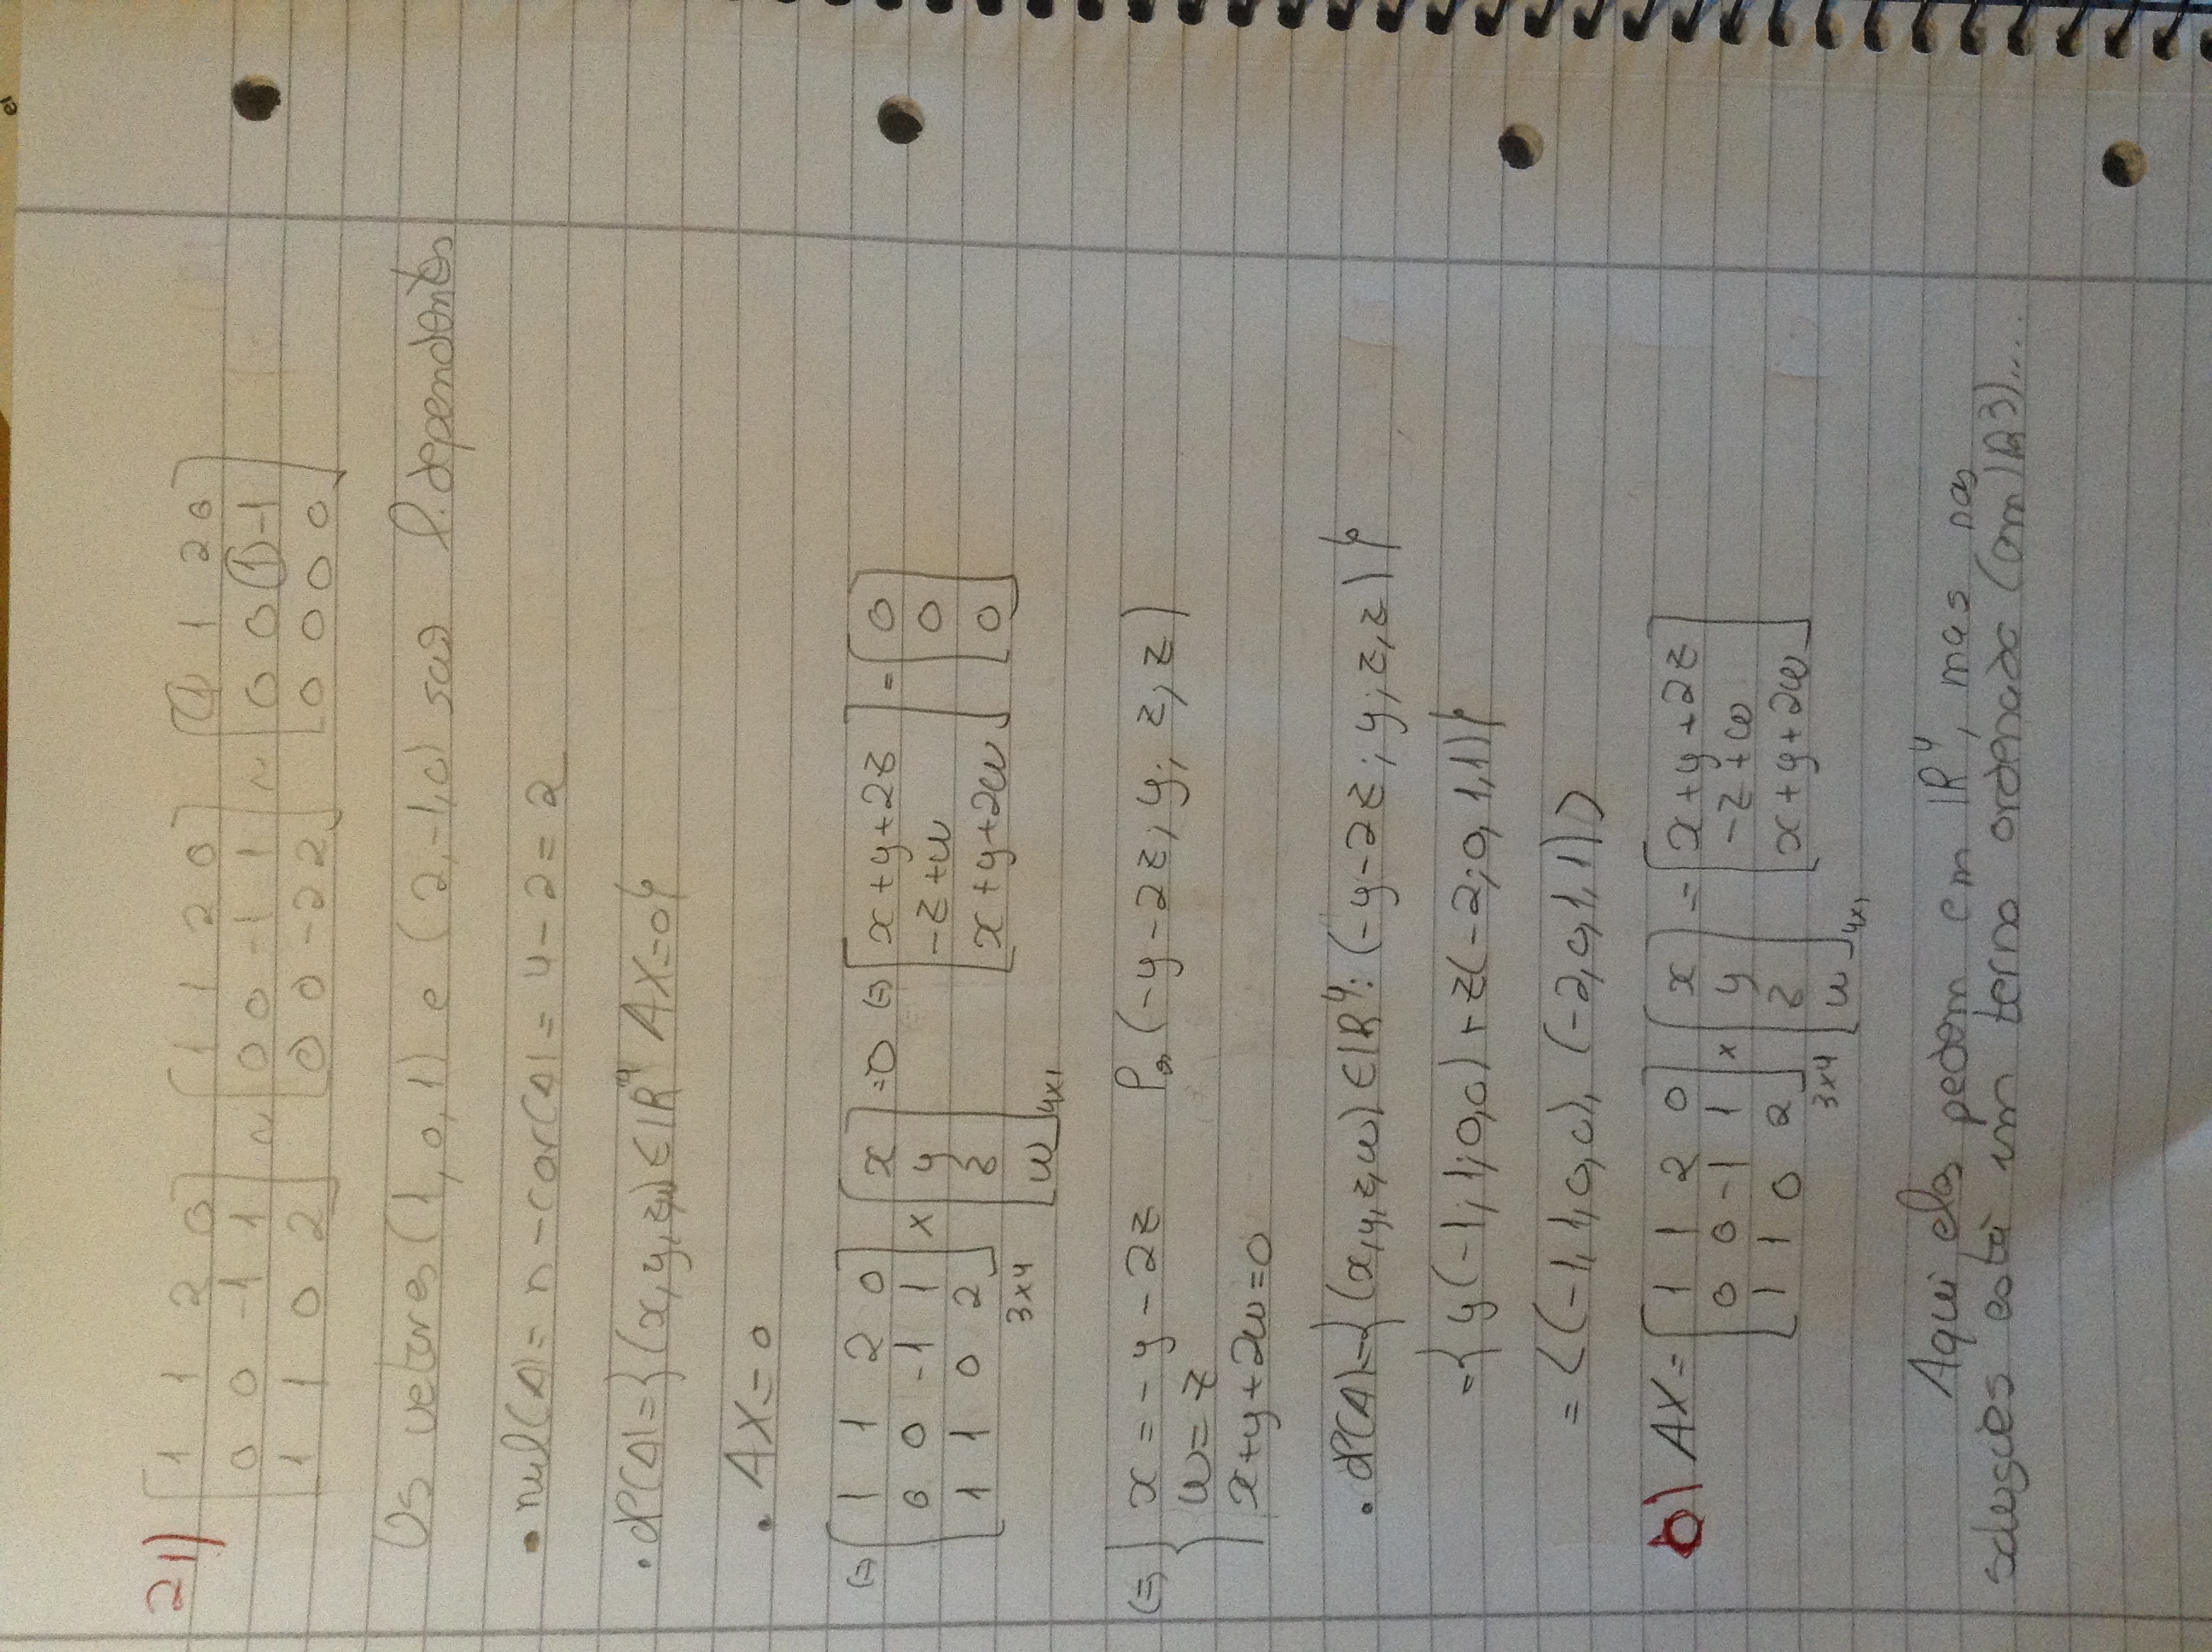 21) [1 1 2 0; 0 0 -1 1; 1 1 0 2] ~ [1 1 2 0; 0 0 -1 1; 0 0 -2 2] ~ [1 1 2 0; 0 0 1 -1; 0 0 0 0]
Os vetores (1,0,1) e (2,-1,0) são l. dependentes
• nul(A) = n - car(A) = 4 - 2 = 2
• N(A) = {(x,y,z,w) ∈ IR⁴ AX=0}
• AX = 0
⇔ [1 1 2 0; 0 0 -1 1; 1 1 0 2] 3x4 × [x; y; z; w] 4x1 = 0 ⇔ [x+y+2z; -z+w; x+y+2w] = [0; 0; 0]
⇔ { x = -y - 2z (-y-2z; y; z; z)
w = z
x+y+2w=0
• N(A) = {(x,y,z,w) ∈ IR⁴: (-y-2z; y; z, z)}
= {y(-1; 1; 0, 0) + z(-2; 0, 1, 1)}
= <(-1, 1, 0, 0), (-2, 0, 1, 1)>
b) AX = [1 1 2 0; 0 0 -1 1; 1 1 0 2] 3x4 × [x; y; z; w] 4x1 = [x+y+2z; -z+w; x+y+2w]
Aqui eles pedem em IR⁴, mas nas
soluções está um terno ordenado (em IR3)....